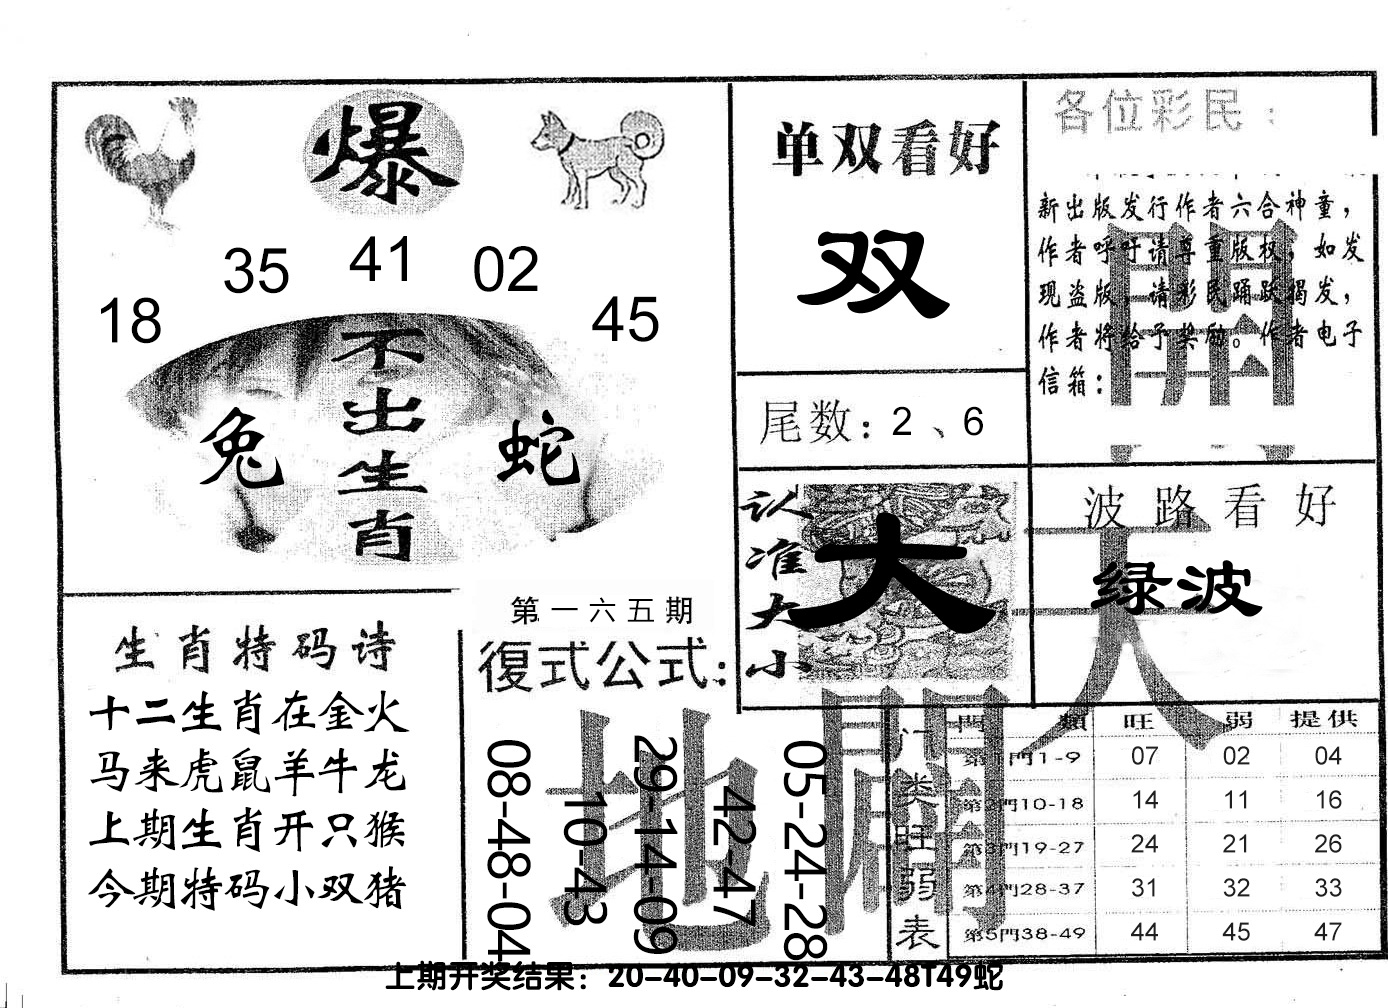 爆
18 35 41 02 45
不出生肖
兔 蛇
单双看好
双
尾数：2、6
各位彩民：
新出版发行作者六合神童，
作者呼吁请尊重版权，如发
现盗版，请彩民踊跃揭发，
作者将给予奖励。作者电子
信箱：
認准大小
大
波路看好
绿波
天
開
地
生肖特码诗
十二生肖在金火
马来虎鼠羊牛龙
上期生肖开只猴
今期特码小双猪
第一六五期
復式公式：
08-48-04
10-43
29-14-09
42-47
05-24-28
门类旺弱表
門類 旺 弱 提供
第1門1-9 07 02 04
第2門10-18 14 11 16
第3門19-27 24 21 26
第4門28-37 31 32 33
第5門38-49 44 45 47
上期开奖结果：20-40-09-32-43-48T49蛇